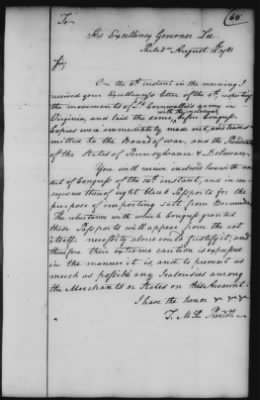 To
60
His Excellency Governor Lee
Philada August 1781
Sir,
On the 6th instant in the morning I
received your Excellency's letter of the 4th, respecting
the movements of Ld Cornwallis's army in
Virginia, and laid the same, before Congress.
Copies were immediately made out, and trans
mitted to the Board of war, and the
of the States of Pennsylvania & Delaware.
You will receive inclosed herewith an
act of Congress of the instant, and in con
sequence thereof eight blank Passports for the
purpose of importing salt from Bermuda.
The reluctance with which Congress granted
these Passports will appear from the act
itself: necessity alone could justify it; and
therefore their extreme caution is expressed
in the manner it is, and to prevent as
much as possible any Jealousies among
the Merchants or States on this Account.
I have the honor &c &c &c
T. M:K. Presidt.